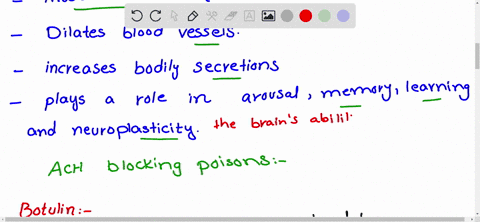 - Dilates blood vessels.
- increases bodily secretions
- plays a role in arousal, memory, learning
and neuroplasticity. the brain's abilit
ACH blocking poisons:-
Botulin:-